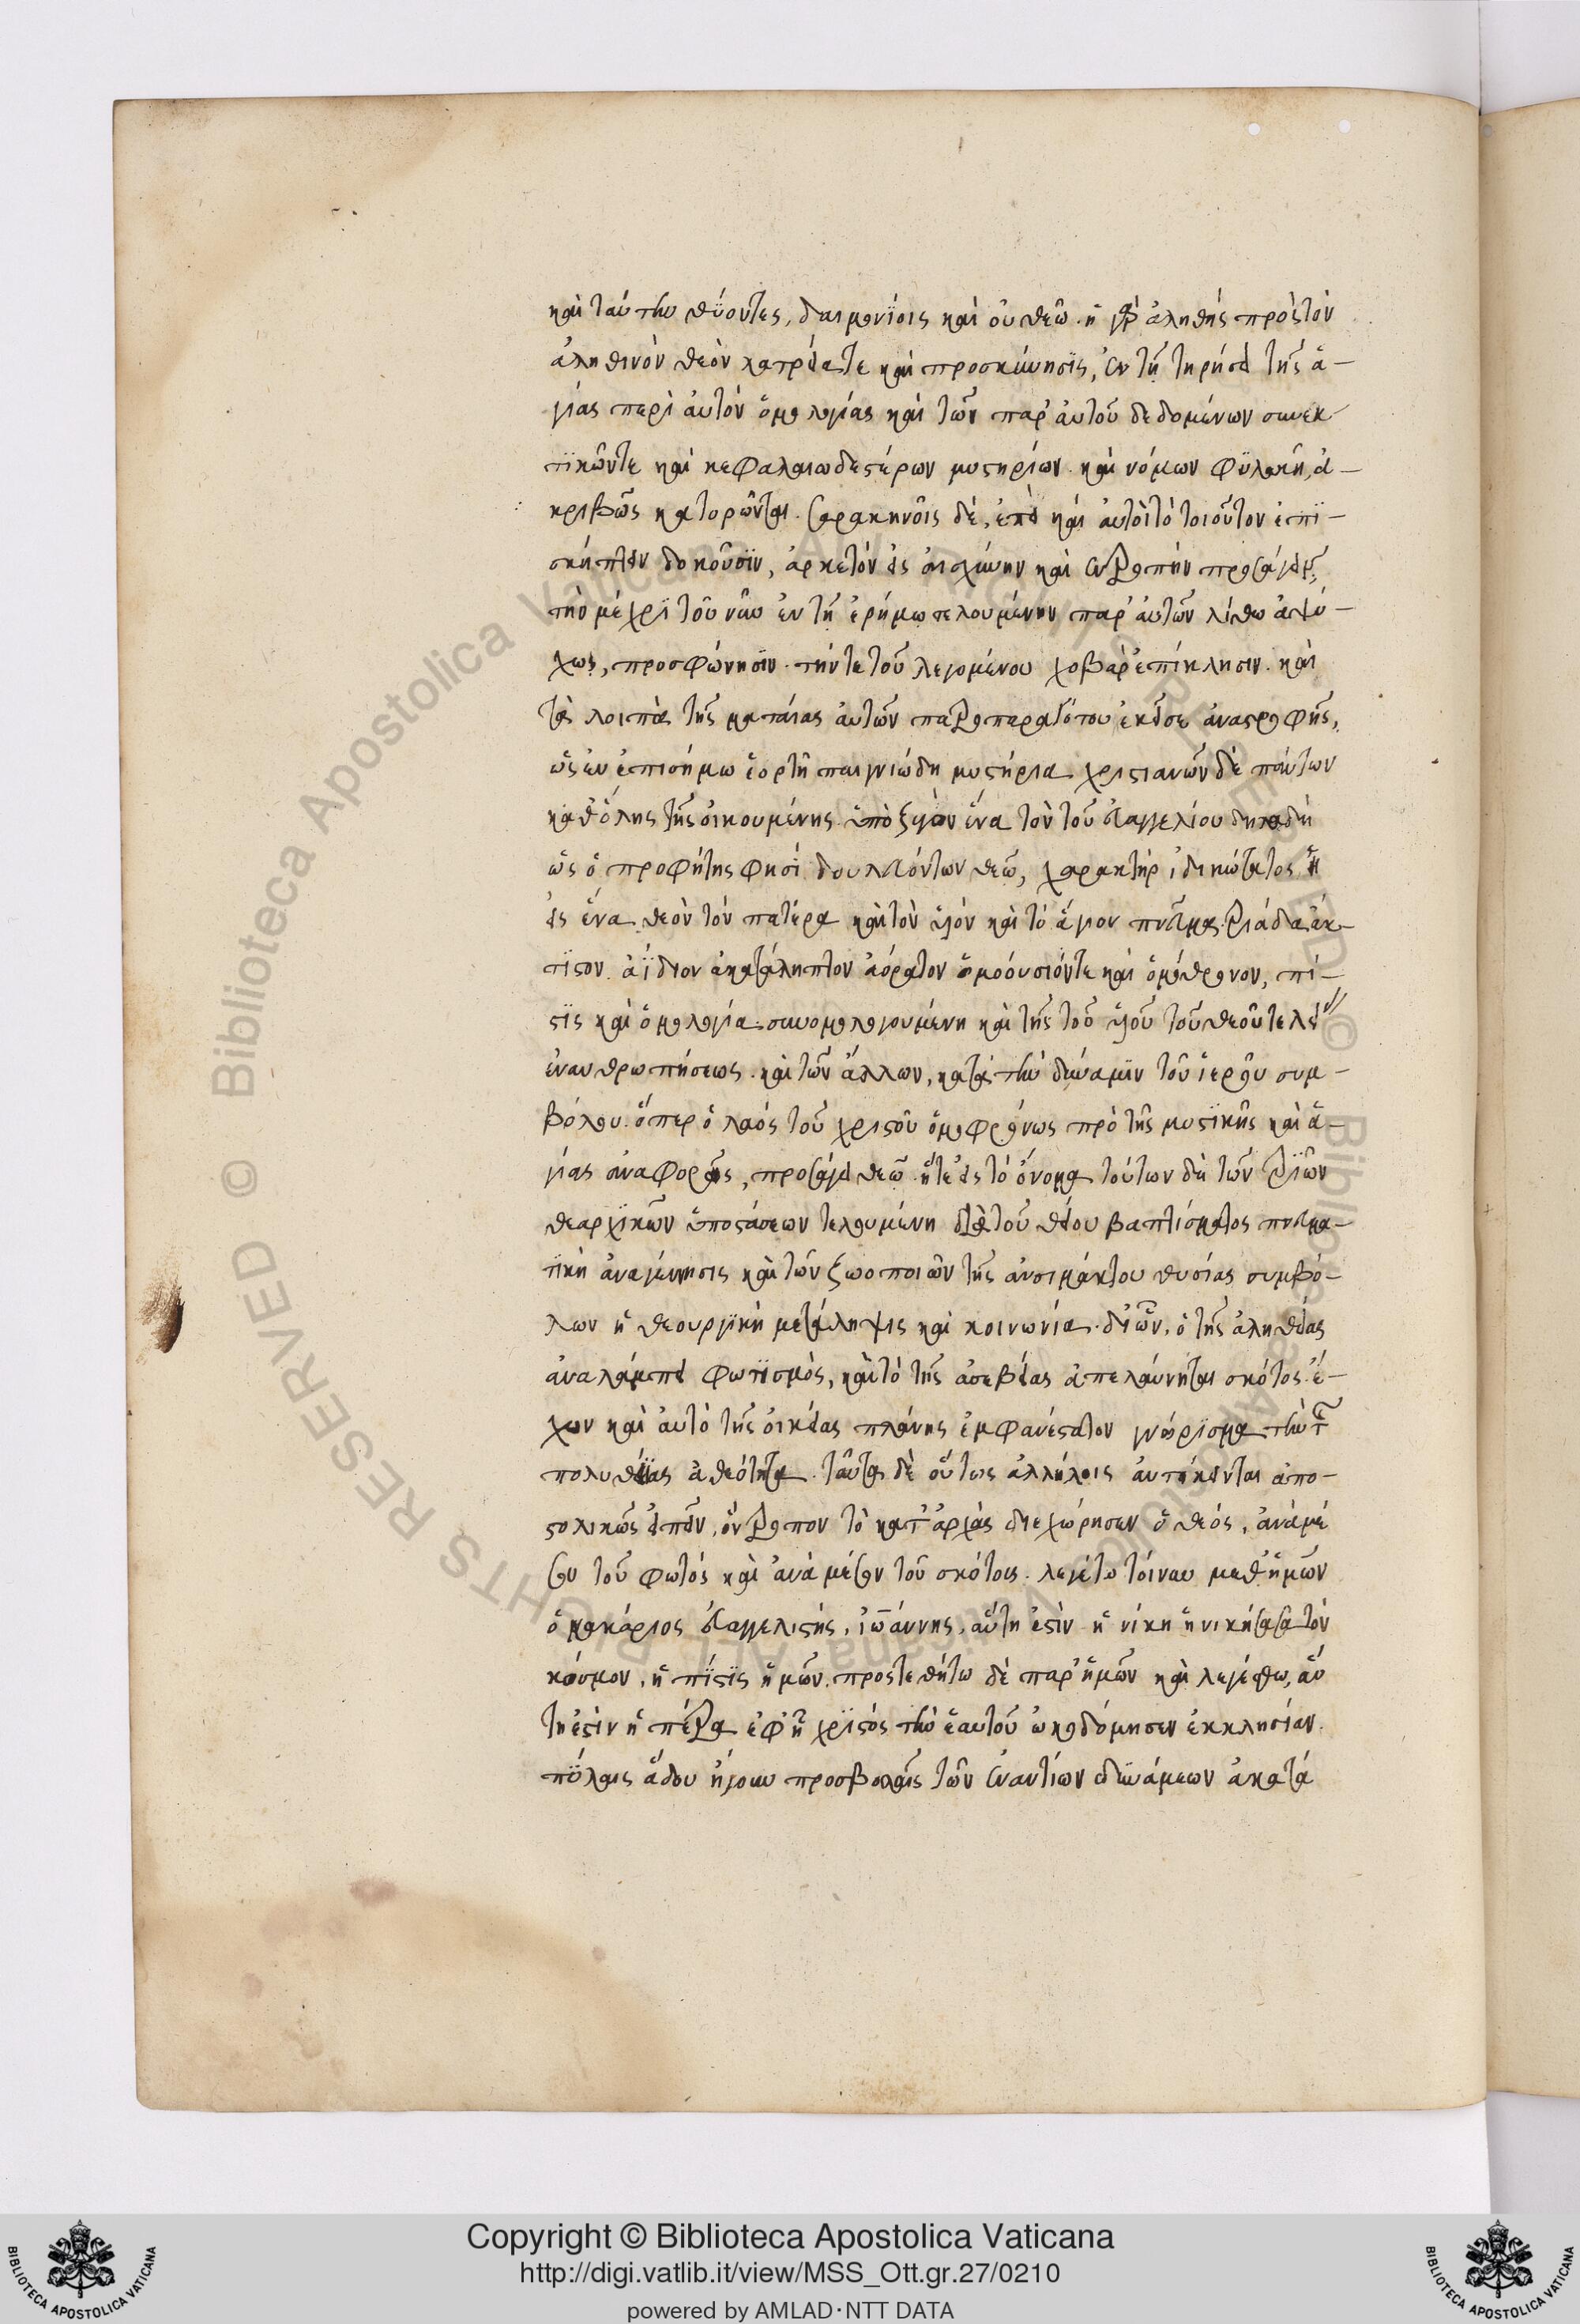 καὶ ταύτην θύοντες, δαιμονίοις καὶ οὐ θεῶ. ἡ γὰρ ἀληθής πρὸς τὸν
ἀληθινὸν θεὸν λατρεία τε καὶ προσκύνησϊς, ἐν τῆ τηρήσει τῆς ἁ-
γίας περὶ αὐτὸν ὁμολογίας καὶ τῶν παρ' αὐτοῦ δεδομένων συνεκ
τϊκῶν τε καὶ κεφαλαιωδεστέρων μυστηρίων καὶ νόμων φϋλακῆ, ἀ-
κριβῶς κατορῶνται. Σαρακηνοῖς δέ, ἐπεὶ καὶ αὐτοὶ τὸ τοιοῦτον ἐπϊ-
σκήπτειν δοκοῦσϊν, ἀρκετόν εἰς αἰσχύνην καὶ ἐντροπήν προσάγειν
τὴν μέχρϊ τοῦ νῦν ἐν τῆ ἐρήμω τελουμένην παρ' αὐτῶν λίθω ἀψύ-
χως, προσφώνησϊν. τήν τε τοῦ λεγομένου χοβὰρ ἐπίκλησιν. καὶ
τὰ λοιπὰ τῆς ματαίας αὐτῶν πατροπαραδότου ἐκεῖσε ἀναστροφῆς,
ὡς ἐν ἐπισήμω ἑορτῆ παιγνιώδη μυστήρια χριστιανῶν δὲ πάντων
καθ' ὅλης τῆς οἰκουμένης ὑπὸ ζυγὸν ἕνα τὸν τοῦ εὐαγγελίου δηλαδὴ
ὡς ὁ προφήτης φησὶ δουλευόντων θεῶ, χαρακτήρ ἰδικώτατος ἡ
εἰς ἕνα θεὸν τὸν πατέρα καὶ τὸν υἱὸν καὶ τὸ ἅγιον πνεῦμα τριάδα ἄκ-
τϊστον ἀΐδιον ἀκατάληπτον ἀόρατον ὁμοούσιόν τε καὶ ὁμόθρονον, πί-
στϊς καὶ ὁμολογία συνομολογουμένη καὶ τῆς τοῦ υἱοῦ τοῦ θεοῦ τελεί
ἐνανθρωπήσεως. καὶ τῶν ἄλλων, κατὰ τὴν δύναμϊν τοῦ ἱεροῦ συμ-
βόλου. ὅπερ ὁ λαός τοῦ χριστοῦ ὁμοφρόνως πρὸ τῆς μυστϊκῆς καὶ ἁ-
γίας ἀναφορᾶς, προσάγει θεῶ. ἥ τε εἰς τὸ ὄνομα τούτων δὴ τῶν τρϊῶν
θεαρχϊκῶν ὑποστάσεων τελουμένη διὰ τοῦ θείου βαπτίσματος πνευμα-
τϊκὴ ἀναγέννησις καὶ τῶν ζωοποιῶν τῆς ἀναιμάκτου θυσίας συμβό-
λων ἡ θεουργϊκὴ μετάληψις καὶ κοινωνία. δι' ὧν, ὁ τῆς ἀληθείας
ἀναλάμπει φωτϊσμὸς, καὶ τὸ τῆς ἀσεβείας ἀπελαύνηται σκότος. ἔ-
χων καὶ αὐτὸ τῆς οἰκείας πλάνης ἐμφανέστατον γνώρϊσμα τὴν τῆς
πολυθεΐας ἀθεότητα. ταῦτα δὲ οὕτως ἀλλήλοις ἀντίκεινται ἀπο-
στολικῶς εἰπεῖν, ὃν τρόπον τὸ κατ' ἀρχὰς διεχώρησεν ὁ θεός, ἀνὰ μέ
σον τοῦ φωτὸς καὶ ἀνὰ μέσον τοῦ σκότους. λεγέτω τοίνυν μεθ' ἡμῶν
ὁ μακάριος εὐαγγελιστής, ἰωάννης, αὕτη ἐστὶν ἡ νίκη ἡ νικήσασα τὸν
κόσμον, ἡ πίστϊς ἡμῶν. προστεθήτω δὲ παρ' ἡμῶν καὶ λεγέσθω, αὕ
τη ἐστὶν ἡ πέτρα ἐφ' ἧ χρϊστὸς τὴν ἑαυτοῦ ὠκοδόμησεν ἐκκλησίαν.
πύλαις ἅδου ἤγουν προσβολαῖς τῶν ἐναντίων δυνάμεων ἀκατά
Copyright © Biblioteca Apostolica Vaticana
http://digi.vatlib.it/view/MSS_Ott.gr.27/0210
powered by AMLAD·NTT DATA